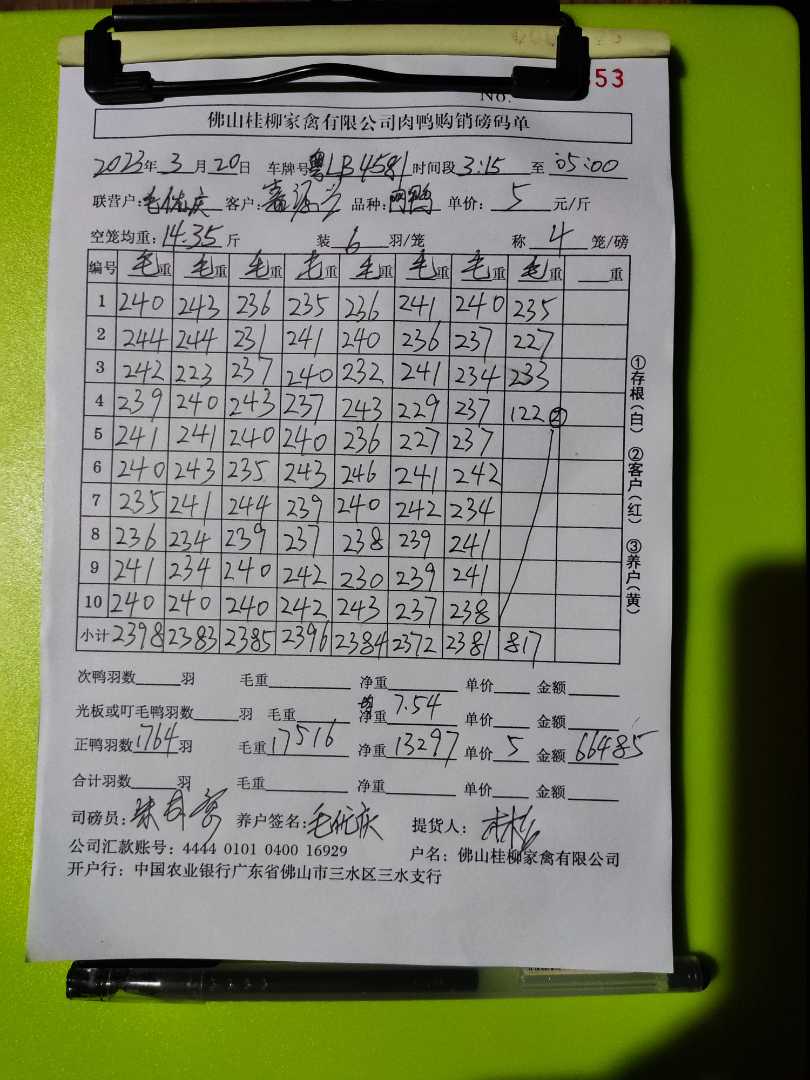 53
No.
佛山桂柳家禽有限公司肉鸭购销磅码单
2023年3月20日 车牌号粤LB4581时间段3:15至05:00
联营户: 毛优庆 客户: 嘉源兴 品种: 肉鸭 单价: 5 元/斤
空笼均重: 14.35斤 装6羽/笼 称4笼/磅
编号 毛重 毛重 毛重 毛重 毛重 毛重 毛重 毛重 重
1 240 243 236 235 236 241 240 235
2 244 244 231 241 240 236 237 227
3 242 223 237 240 232 241 234 233
4 239 240 243 237 243 229 237 122 ②
5 241 241 240 240 236 227 237
6 240 243 235 243 246 241 242
7 235 241 244 239 240 242 234
8 236 234 239 237 238 239 241
9 241 234 240 242 230 239 241
10 240 240 240 242 243 237 238
小计 2398 2383 2385 2396 2384 2372 2381 817
①存根(白) ②客户(红) ③养户(黄)
次鸭羽数 羽 毛重 净重 单价 金额
光板或叮毛鸭羽数 羽 毛重 均 净重 7.54 单价 金额
正鸭羽数1764羽 毛重17516 净重13297 单价5 金额66485
合计羽数 羽 毛重 净重 单价 金额
司磅员: 养户签名: 毛优庆 提货人:
公司汇款账号: 4444 0101 0400 16929 户名: 佛山桂柳家禽有限公司
开户行: 中国农业银行广东省佛山市三水区三水支行